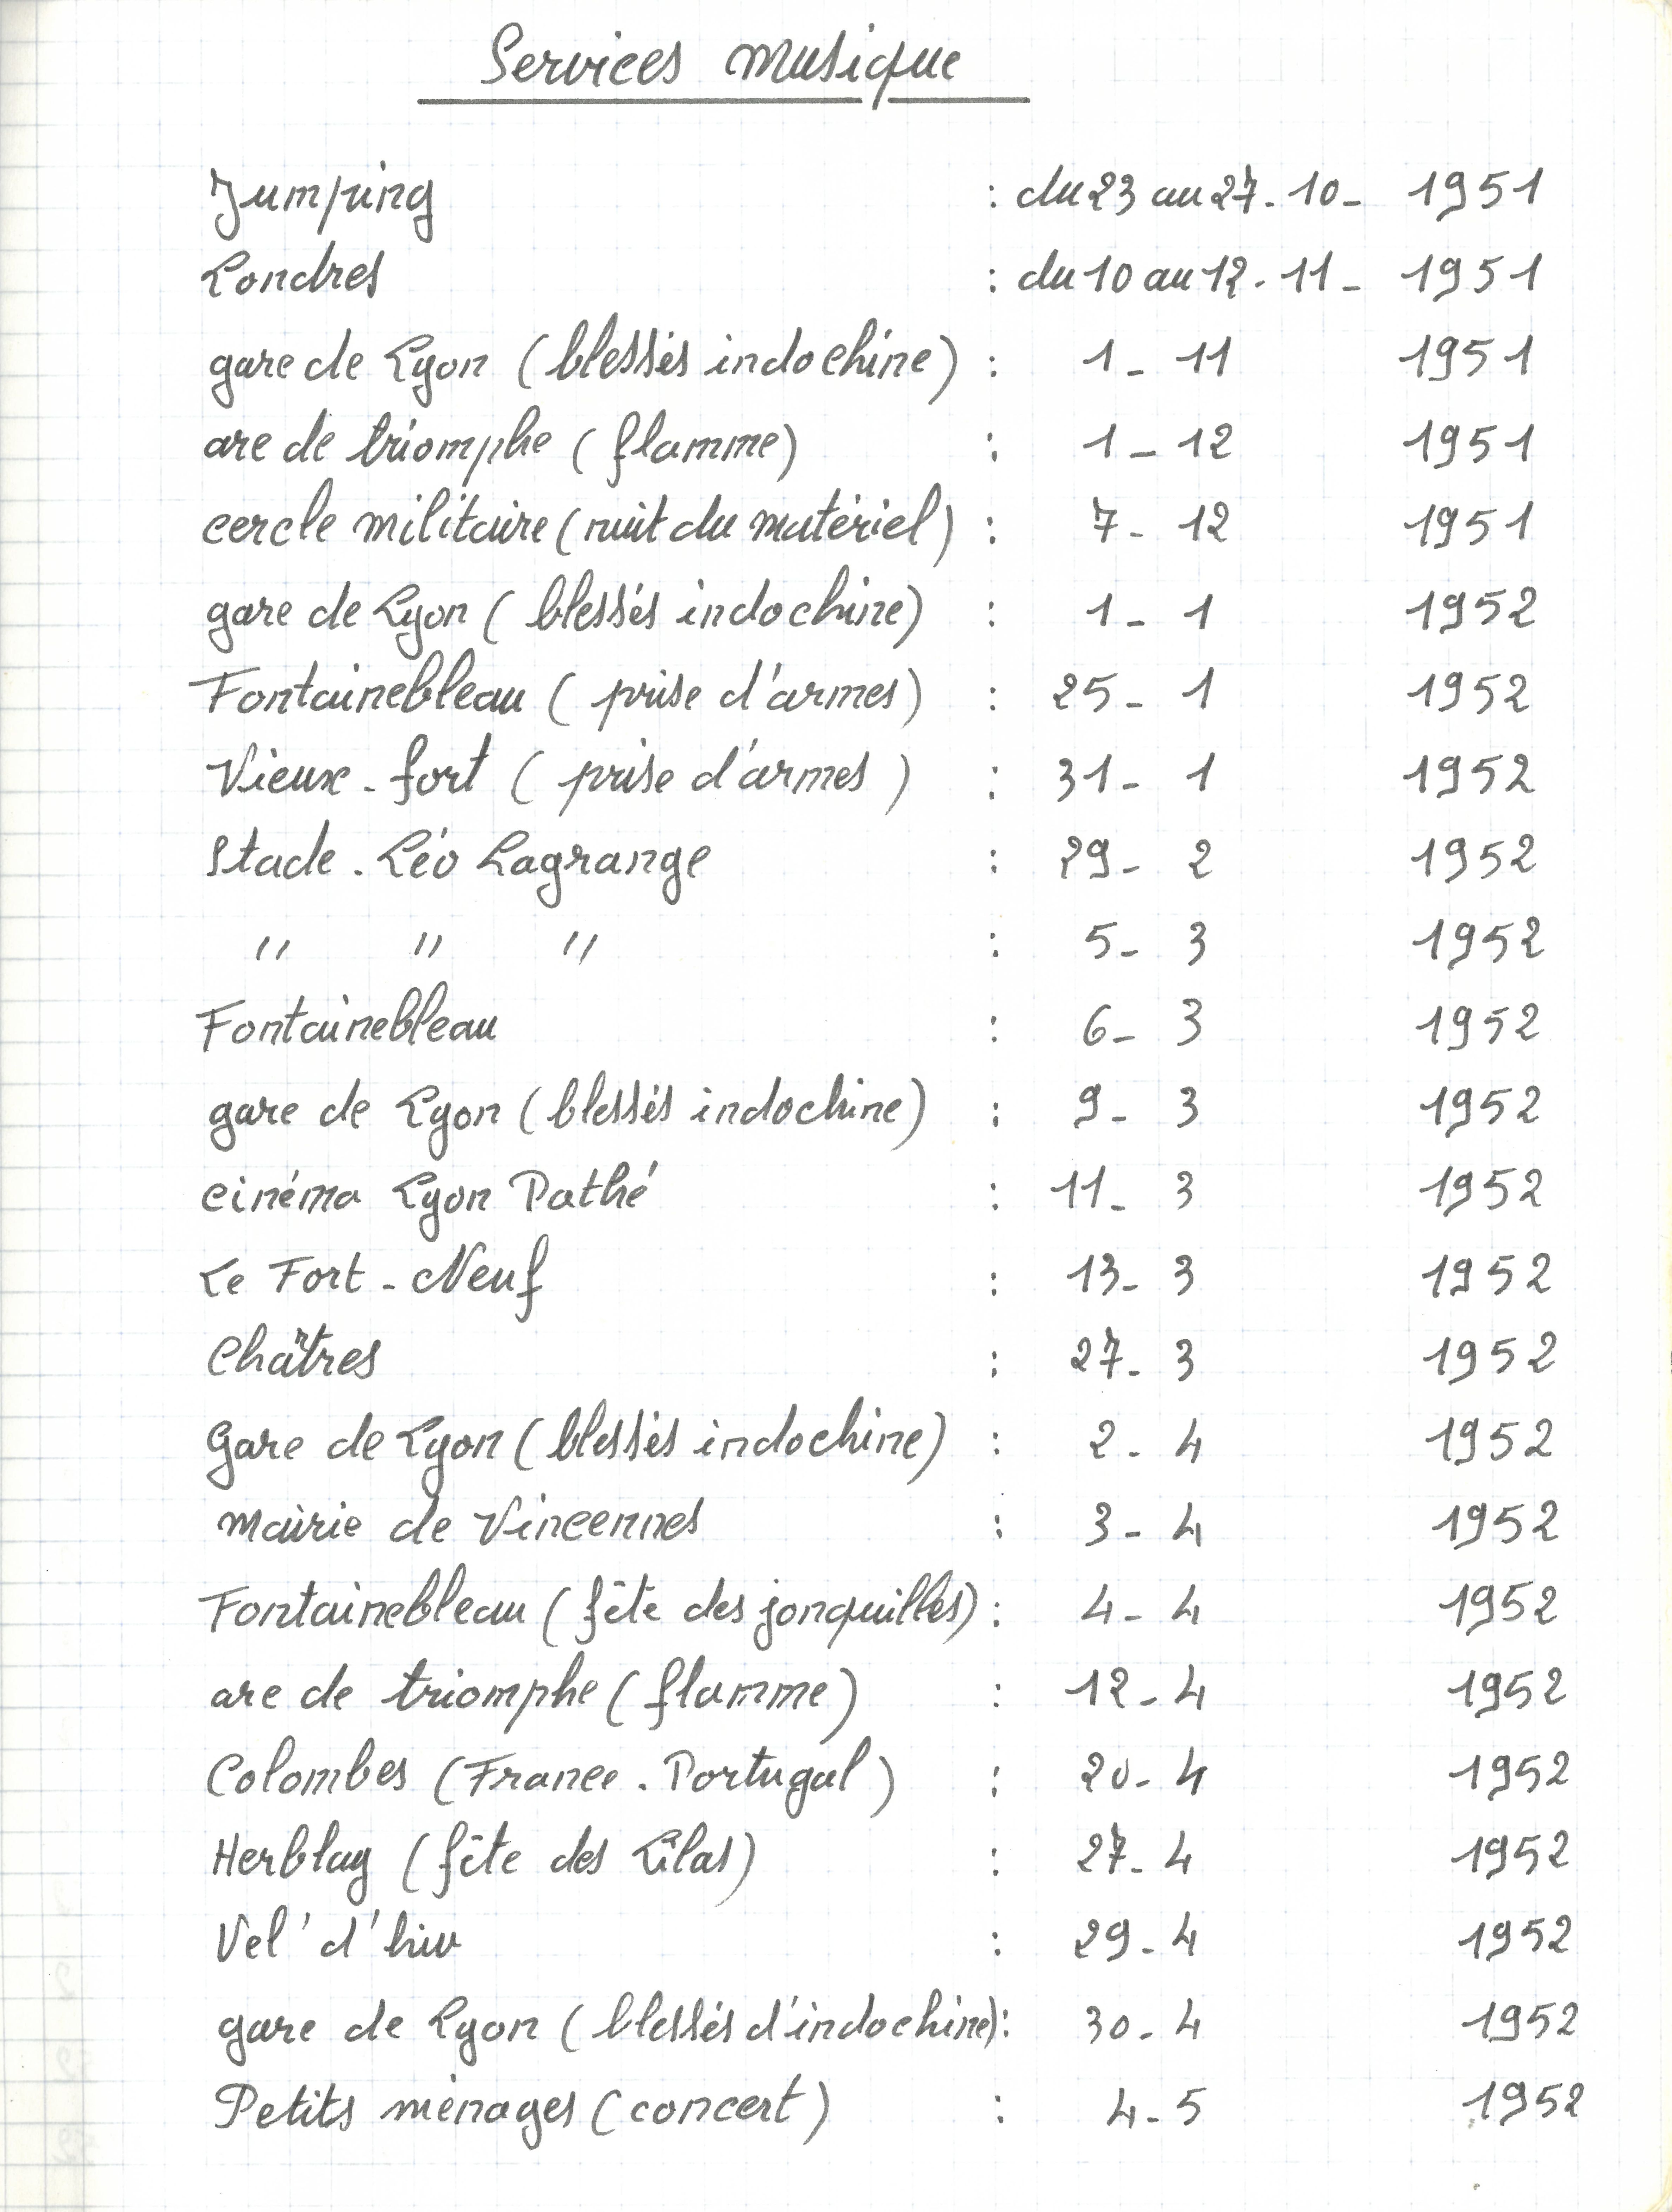 Services musique
Jumping : du 23 au 27-10- 1951
Londres : du 10 au 12-11- 1951
gare de Lyon (blessés indochine) : 1-11 1951
arc de triomphe (flamme) : 1-12 1951
cercle militaire (nuit du matériel) : 7-12 1951
gare de Lyon (blessés indochine) : 1-1 1952
Fontainebleau (prise d'armes) : 25-1 1952
Vieux-fort (prise d'armes) : 31-1 1952
Stade-Léo Lagrange : 29-2 1952
" " " : 5-3 1952
Fontainebleau : 6-3 1952
gare de Lyon (blessés indochine) : 9-3 1952
cinéma Lyon Pathé : 11-3 1952
Le Fort-Neuf : 13-3 1952
Châtres : 27-3 1952
Gare de Lyon (blessés indochine) : 2-4 1952
mairie de Vincennes : 3-4 1952
Fontainebleau (fête des jonquilles) : 4-4 1952
arc de triomphe (flamme) : 12-4 1952
Colombes (France-Portugal) : 20-4 1952
Herblay (fête des Lilas) : 27-4 1952
Vel' d'hiv : 29-4 1952
gare de Lyon (blessés d'indochine) : 30-4 1952
Petits ménages (concert) : 4-5 1952